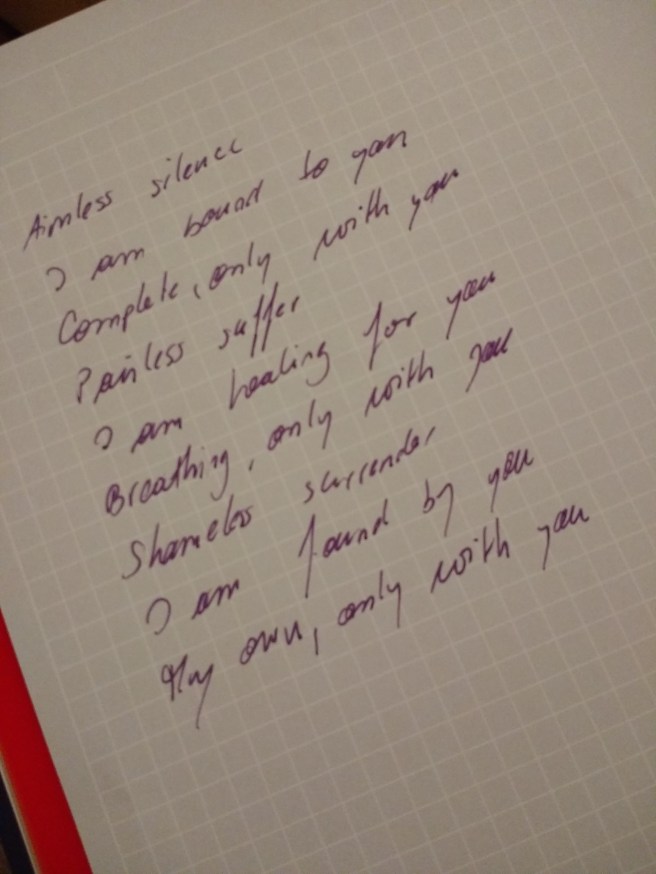 Aimless silence
I am bound to you
Complete, only with you
Painless suffer
I am healing for you
Breathing, only with you
Shameless surrender
I am found by you
My own, only with you